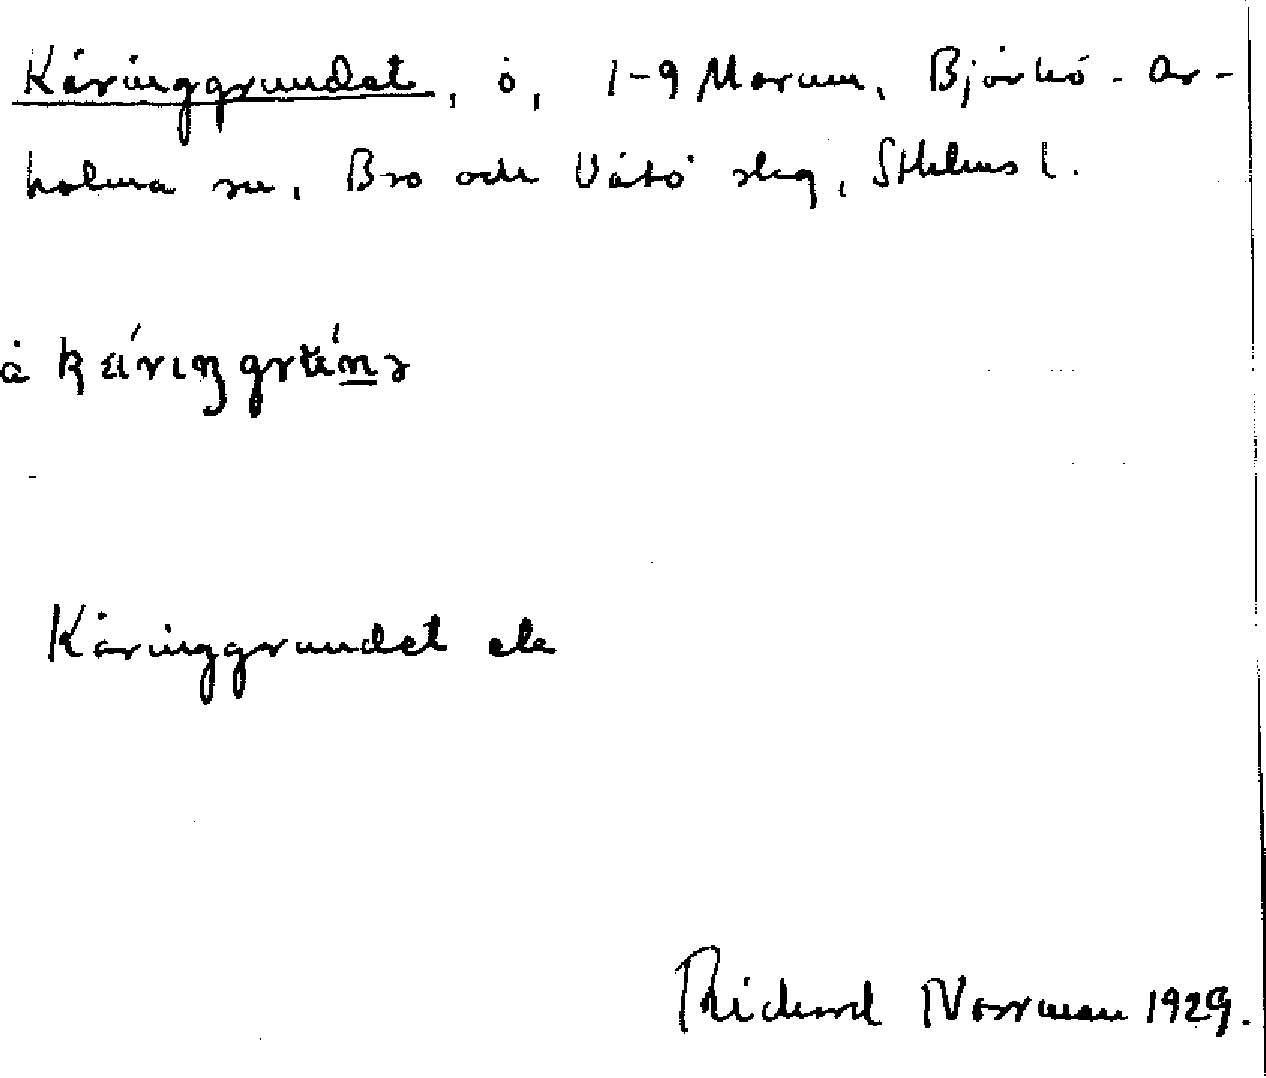 Käringgrundet, ö, 1-9 Marum, Björkö-Ar-
holma sn, Bro och Vätö slag, Sthlms l.
å
Käringgrundet ek
Rickard Norrman 1929.